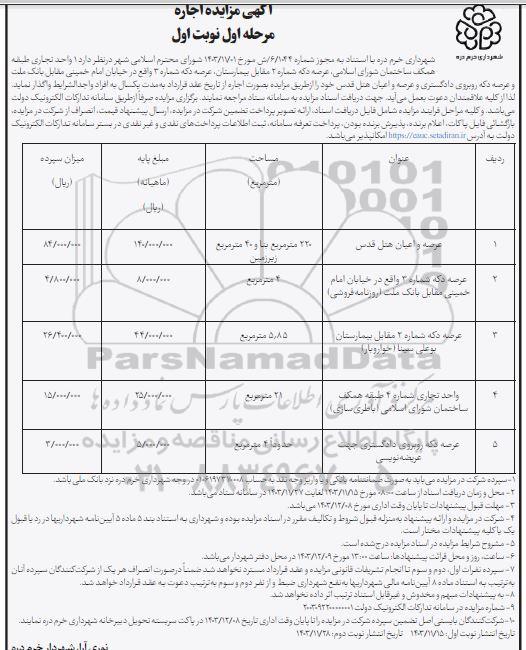 آگهی مزایده اجاره
مرحله اول نوبت اول
شهرداری خرم دره
شهرداری خرم دره با استناد به مجوز شماره ۶/۱۰۴۴/ش مورخ ۱۴۰۳/۱۷/۰۱ شورای محترم اسلامی شهر درنظر دارد ۱ واحد تجاری طبقه
همکف ساختمان شورای اسلامی، عرصه دکه شماره ۲ مقابل بیمارستان، عرصه دکه شماره ۳ واقع در خیابان امام خمینی مقابل بانک ملت
و عرصه دکه روبروی دادگستری و عرصه و اعیان هتل قدس خود را از طریق مزایده بصورت اجاره از تاریخ عقد قرارداد به مدت یکسال به افراد واجدالشرایط واگذار نماید.
لذا از کلیه علاقمندان دعوت بعمل می‌آید. جهت دریافت اسناد مزایده به سامانه ستاد مراجعه نمایند. برگزاری مزایده صرفاً از طریق سامانه تدارکات الکترونیک دولت
می‌باشد. و کلیه مراحل فرایند مزایده شامل فایل دریافت اسناد، ارائه تصویر پرداخت تضمین شرکت در مزایده، ارسال پیشنهاد قیمت، انصراف از شرکت در مزایده،
بازگشائی فایل پاکات، اعلام برنده، پذیرش برنده بودن، پرداخت تعرفه سامانه، ثبت اطلاعات پرداخت‌های نقدی و غیر نقدی در بستر سامانه تدارکات الکترونیک
دولت به آدرس https://eauc.setadiran.ir امکانپذیر می‌باشد.
ردیف عنوان مساحت (مترمربع) مبلغ پایه (ماهیانه) (ریال) میزان سپرده (ریال)
۱ عرصه و اعیان هتل قدس ۲۲۰ مترمربع بنا و ۴۰ مترمربع زیرزمین ۱۴۰/۰۰۰/۰۰۰ ۸۴/۰۰۰/۰۰۰
۲ عرصه دکه شماره ۳ واقع در خیابان امام خمینی مقابل بانک ملت (روزنامه فروشی) ۴ مترمربع ۸/۰۰۰/۰۰۰ ۴/۸۰۰/۰۰۰
۳ عرصه دکه شماره ۲ مقابل بیمارستان بوعلی سینا (خواروبار) ۵٫۸۵ مترمربع ۴۴/۰۰۰/۰۰۰ ۲۶/۴۰۰/۰۰۰
۴ واحد تجاری شماره ۴ طبقه همکف ساختمان شورای اسلامی (باطری‌سازی) ۲۱ مترمربع ۲۵/۰۰۰/۰۰۰ ۱۵/۰۰۰/۰۰۰
۵ عرصه دکه روبروی دادگستری جهت عریضه‌نویسی حدوداً ۴ مترمربع ۵/۰۰۰/۰۰۰ ۳/۰۰۰/۰۰۰
۱- سپرده شرکت در مزایده می‌باید به صورت ضمانتنامه بانکی و یا واریز وجه نقد به حساب ۰۱۰۶۱۹۷۳۷۰۰۰۸ در وجه شهرداری خرم دره نزد بانک ملی باشد.
۲- محل و زمان دریافت اسناد از ساعت ۰۸:۰۰ مورخ ۱۴۰۳/۱۱/۱۵ لغایت ۱۴۰۳/۱۱/۲۷ در سامانه ستاد می‌باشد.
۳- مهلت قبول پیشنهادات تا پایان وقت اداری مورخ ۱۴۰۳/۱۲/۰۸ می‌باشد.
۴- شرکت در مزایده و ارائه پیشنهاد به منزله قبول شروط و تکالیف مقرر در اسناد مزایده بوده و شهرداری به استناد بند ۵ ماده ۵ آیین‌نامه شهرداریها در رد یا قبول
یک یا کلیه پیشنهادات مختار است.
۵- مشروح شرایط مزایده در اسناد مزایده درج شده است.
۶- ساعت، روز و محل قرائت پیشنهادها: ساعت ۱۳:۰۰ مورخ ۱۴۰۳/۱۲/۰۹ در محل دفتر شهردار می‌باشد.
۷- سپرده نفرات اول، دوم و سوم تا انجام تشریفات قانونی مزایده و عقد قرارداد مسترد نخواهد شد ضمناً درصورت انصراف هر یک از شرکت‌کنندگان سپرده آنان
به ترتیب به استناد ماده ۸ آیین‌نامه مالی شهرداریها به نفع شهرداری ضبط و از نفر دوم و سوم به ترتیب دعوت به عقد قرارداد خواهد شد.
۸- به پیشنهادات مبهم و مخدوش و غیرقابل استناد ترتیب اثر داده نخواهد شد.
۹- شماره مزایده در سامانه تدارکات الکترونیک دولت
۱۰- شرکت‌کنندگان بایستی اصل تضمین سپرده شرکت در مزایده را تا پایان وقت اداری تاریخ ۱۴۰۳/۱۲/۰۸ در پاکت سربسته تحویل دبیرخانه شهرداری خرم دره نمایند.
تاریخ انتشار نوبت اول: ۱۴۰۳/۱۱/۱۵ تاریخ انتشار نوبت دوم: ۱۴۰۳/۱۱/۲۸
نوری آرا، شهردار خرم دره
ParsNamadData